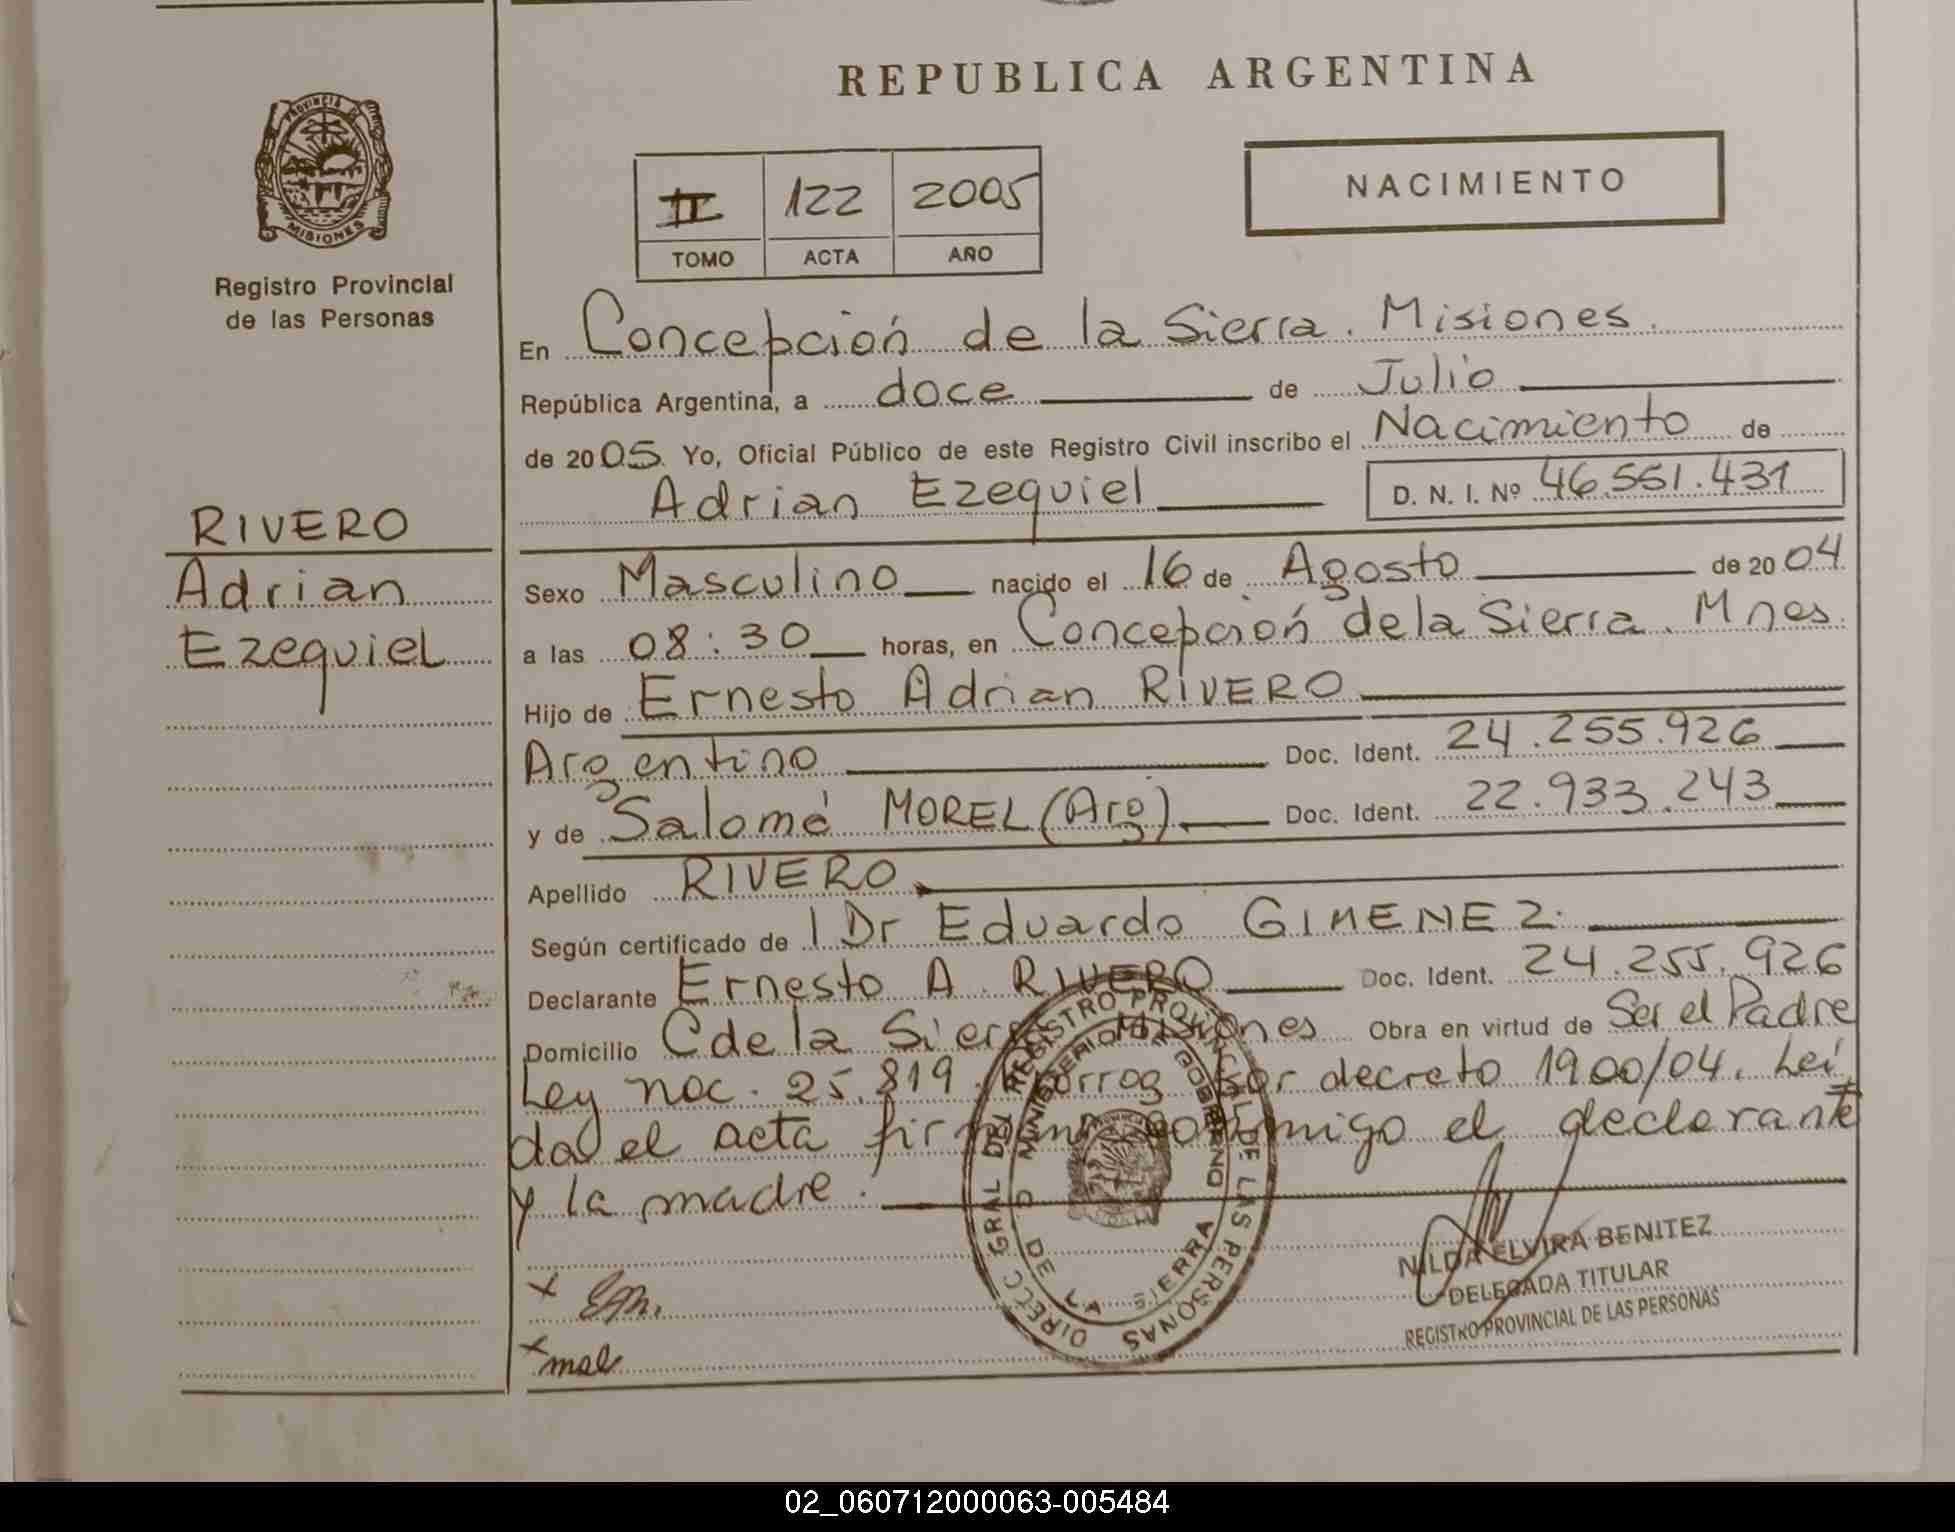 REPUBLICA ARGENTINA
PROVINCIA DE
MISIONES
Registro Provincial
de las Personas
II 122 2005
TOMO ACTA AÑO
NACIMIENTO
En Concepción de la Sierra. Misiones.
República Argentina, a doce de Julio
de 2005. Yo, Oficial Público de este Registro Civil inscribo el Nacimiento de
Adrian Ezequiel D. N. I. Nº 46.551.431
RIVERO
Adrian
Ezequiel
Sexo Masculino nacido el 16 de Agosto de 2004
a las 08:30 horas, en Concepción de la Sierra. Mnes.
Hijo de Ernesto Adrian RIVERO
Argentino Doc. Ident. 24.255.926
y de Salomé MOREL (Arg) Doc. Ident. 22.933.243
Apellido RIVERO
Según certificado de Dr Eduardo GIMENEZ.
Declarante Ernesto A. RIVERO Doc. Ident. 24.255.926
Domicilio C de la Sierra Misiones Obra en virtud de Ser el Padre
Ley nac. 25.819. Prorrog por decreto 1900/04. Leí
da el acta firman conmigo el declarante
y la madre.
DIRELC GRAL DEL REGISTRO PROVINCIAL DE LAS PERSONAS
MINISTERIO DE GOBIERNO
DE LA SIERRA
NILDA ELVIRA BENITEZ
DELEGADA TITULAR
REGISTRO PROVINCIAL DE LAS PERSONAS
x
x
02_060712000063-005484